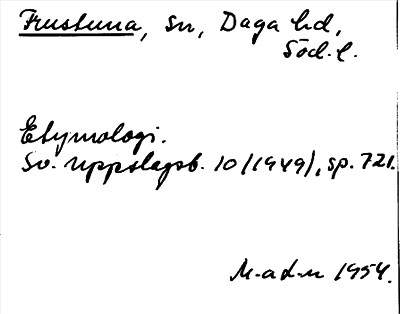 Frustuna, sn, Daga hd,
Söd. l.
Etymologi.
Sv. Uppslagsb. 10 (1949), sp. 721.
M-a d-n 1954.